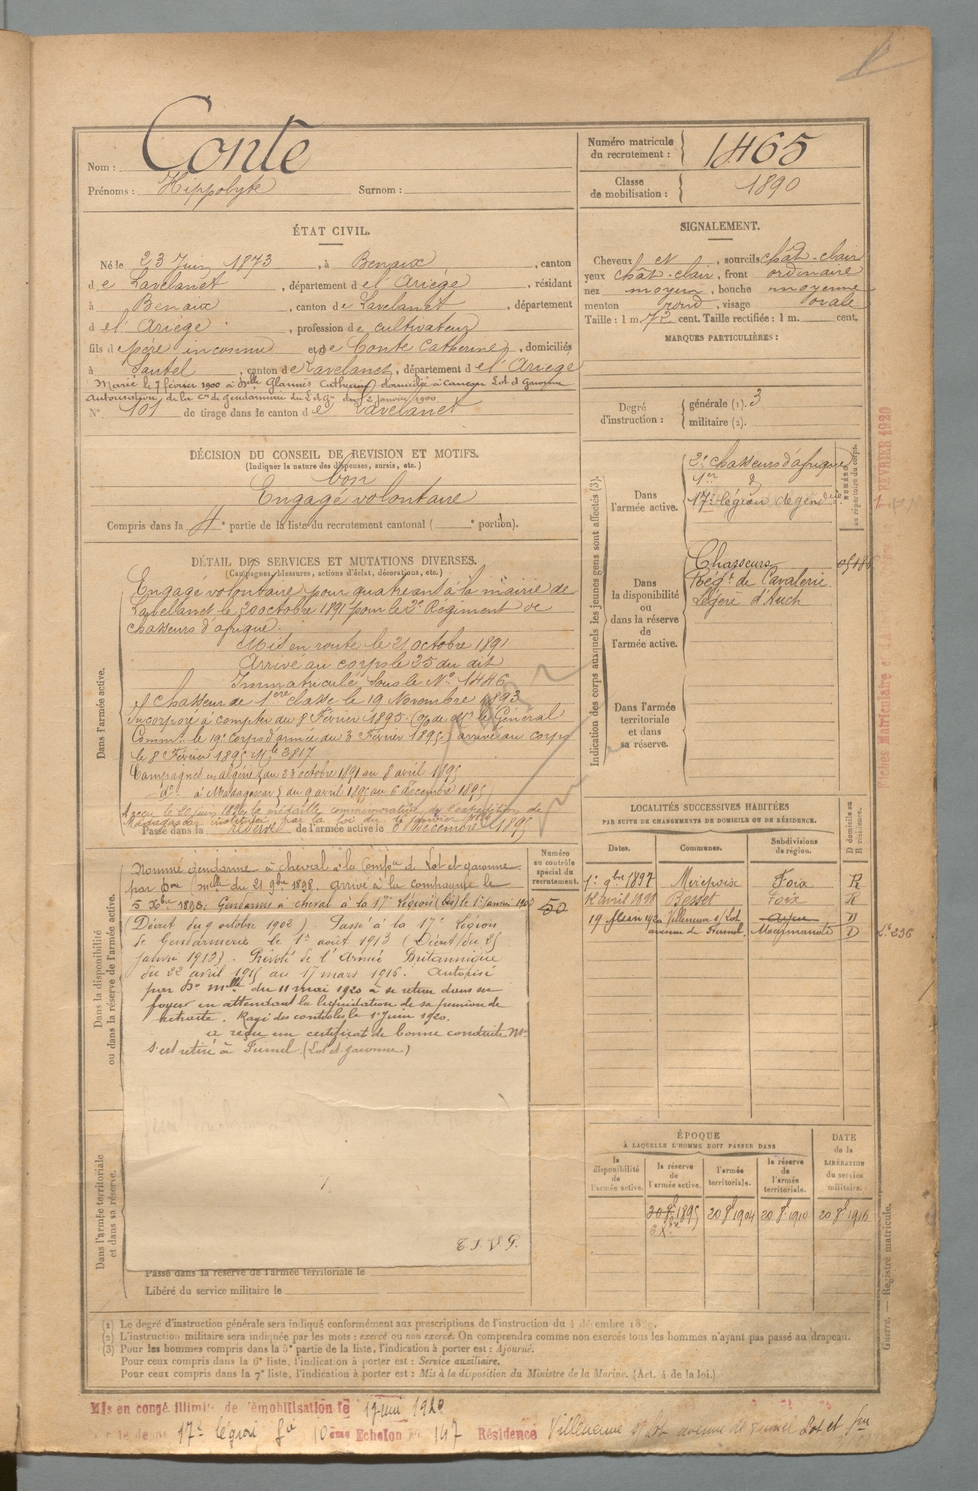 Nom : Conte
Prénoms : Hippolyte Surnom :
Numéro matricule du recrutement : 1465
Classe de mobilisation : 1890
ÉTAT CIVIL.
Né le 23 Juin 1873, à Benaix, canton
de Lavelanet, département de l'Ariège, résidant
à Benaix, canton de Lavelanet, département
de l'Ariège, profession de cultivateur
fils de père inconnu et de Conte Catherine, domiciliés
à Sautel, canton de Lavelanet, département de l'Ariège
Marié le 7 février 1900 à Dlle Glannés Catherine domiciliée à Cancon Lot et Garonne
Autorisation de la Cie de gendarmerie du L et Gne du 2 janvier 1900
N° 101 de tirage dans le canton de Lavelanet
SIGNALEMENT.
Cheveux et sourcils chât-clair
yeux chât-clair, front ordinaire
nez moyen, bouche moyenne
menton rond, visage ovale
Taille : 1 m. 72 cent. Taille rectifiée : 1 m. cent.
MARQUES PARTICULIÈRES :
Degré d'instruction : générale (1). 3
militaire (2).
DÉCISION DU CONSEIL DE REVISION ET MOTIFS.
(Indiquer la nature des dispenses, sursis, etc.)
bon
Engagé volontaire
Compris dans la 4e partie de la liste du recrutement cantonal ( e portion).
DÉTAIL DES SERVICES ET MUTATIONS DIVERSES.
(Campagnes, blessures, actions d'éclat, décorations, etc.)
Dans l'armée active.
Engagé volontaire pour quatre ans à la mairie de
Lavelanet le 20 octobre 1891 pour le 2e Régiment de
chasseurs d'afrique.
Mis en route le 21 octobre 1891
Arrivé au corps le 25 du dit
Immatriculé sous le N° 1446
Chasseur de 1ère classe le 19 Novembre 1893
Incorporé à compter du 8 Février 1895 de Mr le Général
Commt le 19e Corps d'armée du 3 Février 1895) arrivé au corps
le 8 Février 1895 Mle 3817
Campagnes en algérie du 23 octobre 1891 au 8 avril 1895
do à Madagascar du 9 avril 1895 au 6 décembre 1895
A reçu le 20 juin 1896 la médaille commémorative de l'expédition de
Madagascar instituée par la loi du 15 janvier 1896
Passé dans la réserve de l'armée active le 6 Décembre 1895
Indication des corps auxquels les jeunes gens sont affectés (3).
Dans l'armée active.
2e chasseurs d'afrique
1er d°
17e légion de gendrie
NUMÉRO au répertoire du corps.
Dans la disponibilité ou dans la réserve de l'armée active.
Chasseurs
Régt de Cavalerie
Légère d'Auch
Dans l'armée territoriale et dans sa réserve.
Dans la disponibilité ou dans la réserve de l'armée active.
Nommé gendarme à cheval à la Compie de Lot et garonne
par Don Mlle du 21 9bre 1898. Arrivé à la compagnie le
5 Xbre 1898. Gendarme à cheval à la 17e Légion (bis) le 1er janvier 1903
(Décret du 9 octobre 1902) Passé à la 17e Légion
de Gendarmerie le 1er août 1913 (Décret du 25
janvier 1913). Prévôté de l'Armée Britannique
du 22 avril 1915 au 17 mars 1916. Autorisé
par Don Mlle du 11 mai 1920 à se retirer dans ses
foyers en attendant la liquidation de sa pension de
retraite. Rayé des contrôles le 1er Juin 1920.
a reçu un certificat de bonne conduite
S'est retiré à Fumel (Lot et garonne.)
E.S.V.G.
Numéro au contrôle spécial du recrutement.
50
Dans l'armée territoriale et dans sa réserve.
Passé dans la réserve de l'armée territoriale le
Libéré du service militaire le
LOCALITÉS SUCCESSIVES HABITÉES
PAR SUITE DE CHANGEMENTS DE DOMICILE OU DE RÉSIDENCE.
Dates. Communes. Subdivisions de région. D domicile ou R résidence.
1er 9bre 1897 Mirepoix Foix R
12 avril 1898 Besset Foix R
19 Juin 1920 Villeneuve s/ Lot Agen D
avenue de Fumel. Marmande D
ÉPOQUE
À LAQUELLE L'HOMME DOIT PASSER DANS
la disponibilité de l'armée active. la réserve de l'armée active. l'armée territoriale. la réserve de l'armée territoriale. DATE de la LIBÉRATION du service militaire.
20 8bre 1895 20 8bre 1904 20 8bre 1910 20 8bre 1916
6 Xbre
(1) Le degré d'instruction générale sera indiqué conformément aux prescriptions de l'instruction du 4 décembre
(2) L'instruction militaire sera indiquée par les mots : exercé ou non exercé. On comprendra comme non exercés tous les hommes n'ayant pas passé au drapeau.
(3) Pour les hommes compris dans la 5e partie de la liste, l'indication à porter est : Ajourné.
Pour ceux compris dans la 6e liste, l'indication à porter est : Service auxiliaire.
Pour ceux compris dans la 7e liste, l'indication à porter est : Mis à la disposition du Ministre de la Marine. (Art. 4 de la loi.)
Guerre. — Registre matricule.
FÉVRIER 1920
Mis en congé illimité de démobilisation le 17 Juin 1920
17e légion 10ème Echelon No 147 Résidence Villeneuve s/ Lot avenue de Fumel Lot et Gne